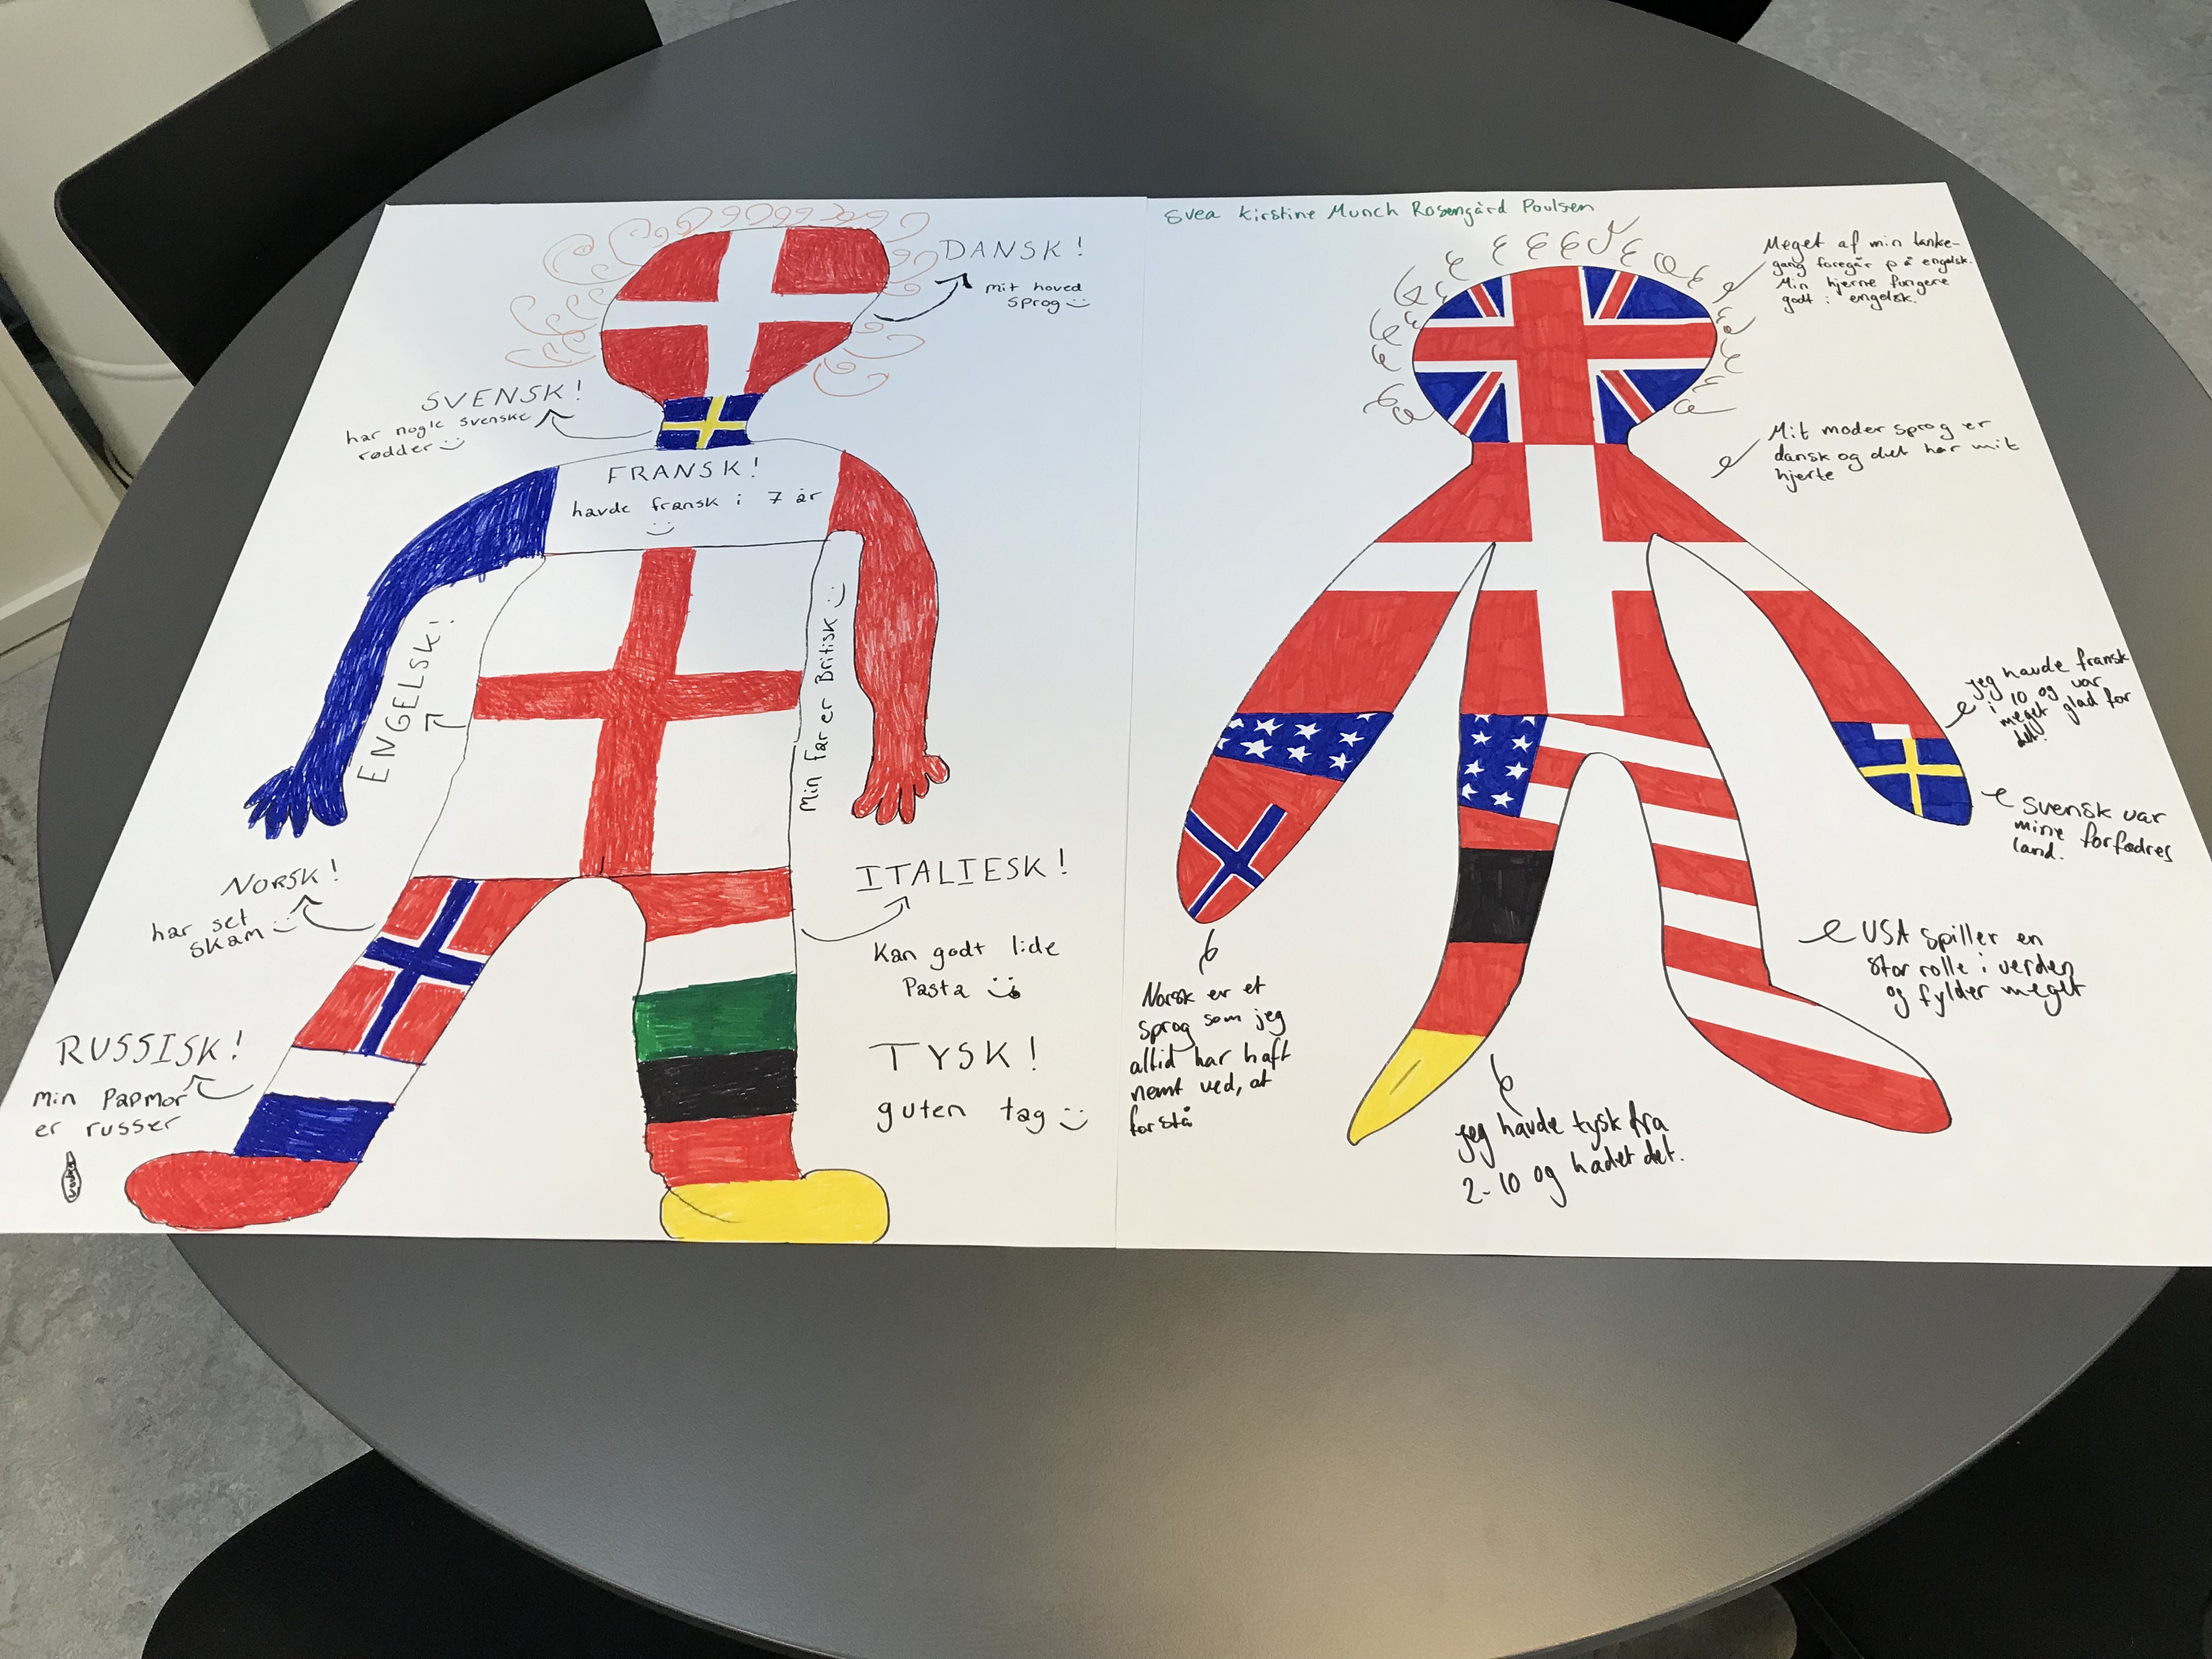 DANSK!
mit hoved
sprog
SVENSK!
har nogle svenske
rødder
FRANSK!
havde fransk i 7 år
ENGELSK!
Min far er Britisk
NORSK!
har set
skam
ITALIESK!
Kan godt lide
Pasta
RUSSISK!
min Papmor
er russer
vodka
TYSK!
guten tag
Svea Kirstine Munch Rosengård Poulsen
Meget af min tanke-
gang foregår på engelsk.
Min hjerne fungere
godt i engelsk.
Mit moder sprog er
dansk og det har mit
hjerte
jeg havde fransk
i 10 og var
meget glad for
det!
Svensk var
mine forfædres
land.
USA spiller en
stor rolle i verden
og fylder meget
Norsk er et
sprog som jeg
altid har haft
nemt ved, at
forstå
jeg havde tysk fra
2-10 og hadet det.